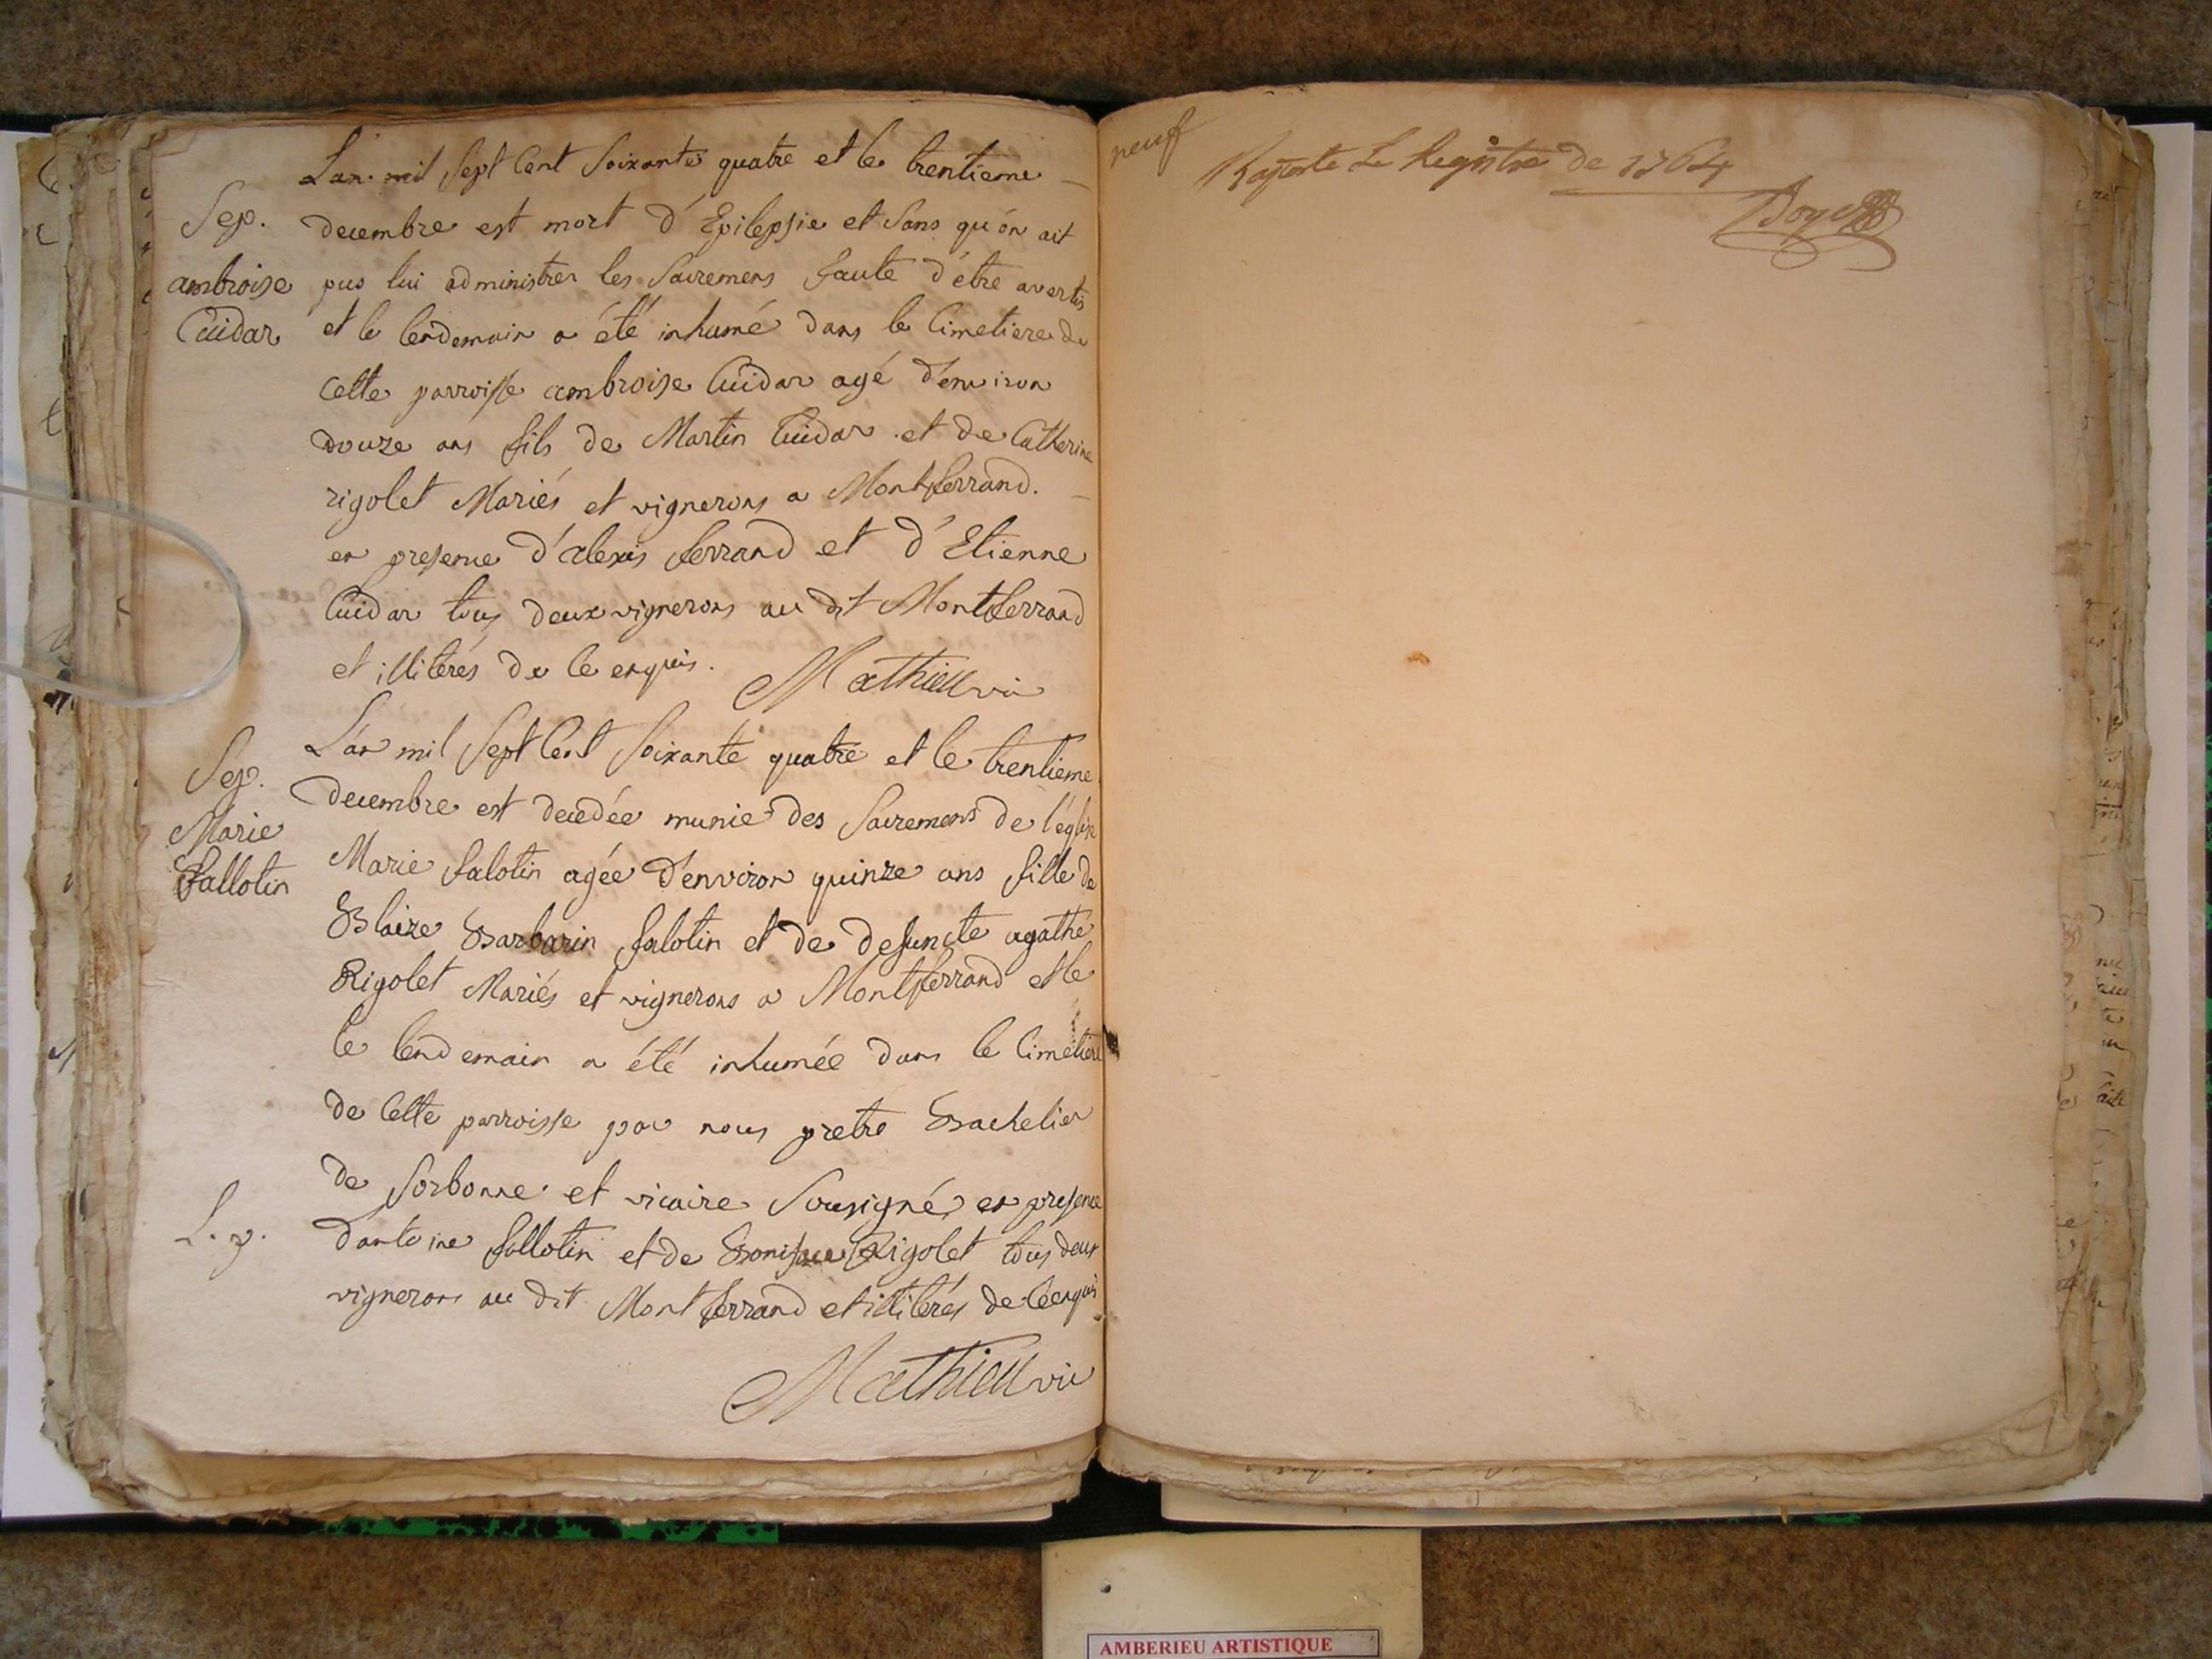 L'an mil sept cent soixante quatre et le trentieme
Sep. decembre est mort d'Epilepsie et sans qu'on ait
ambroise pus lui administrer les sacremens faute d'être avertis
Cuidar et le lendemain a été inhumé dans le cimetiere de
cette parroisse ambroise Cuidar agé d'environ
douze ans fils de Martin Cuidar et de Catherine
rigolet Mariés et vignerons a Montferrand.
en presence d'alexis ferrand et d'Etienne
Cuidar tous deux vignerons au dit Montferrand
et illiterés de ce enquis. Mathieu vic
L'an mil sept cent soixante quatre et le trentieme
Sep. decembre est decedée munie des sacremens de l'église
Marie Marie falotin agée d'environ quinze ans fille de
fallotin Blaize Barbarin falotin et de defuncte agathe
Rigolet Mariés et vignerons a Montferrand et le
le lendemain a été inhumée dans le cimetiere
de cette parroisse par nous pretre Bachelier
de sorbonne et vicaire sousigné en presence
d'antoine fallotin et de Boniface Rigolet tous deux
vignerons au dit Montferrand et illiterés de ce enquis
Mathieu vic
neuf
Raporté Le Registre de 1764
AMBERIEU ARTISTIQUE